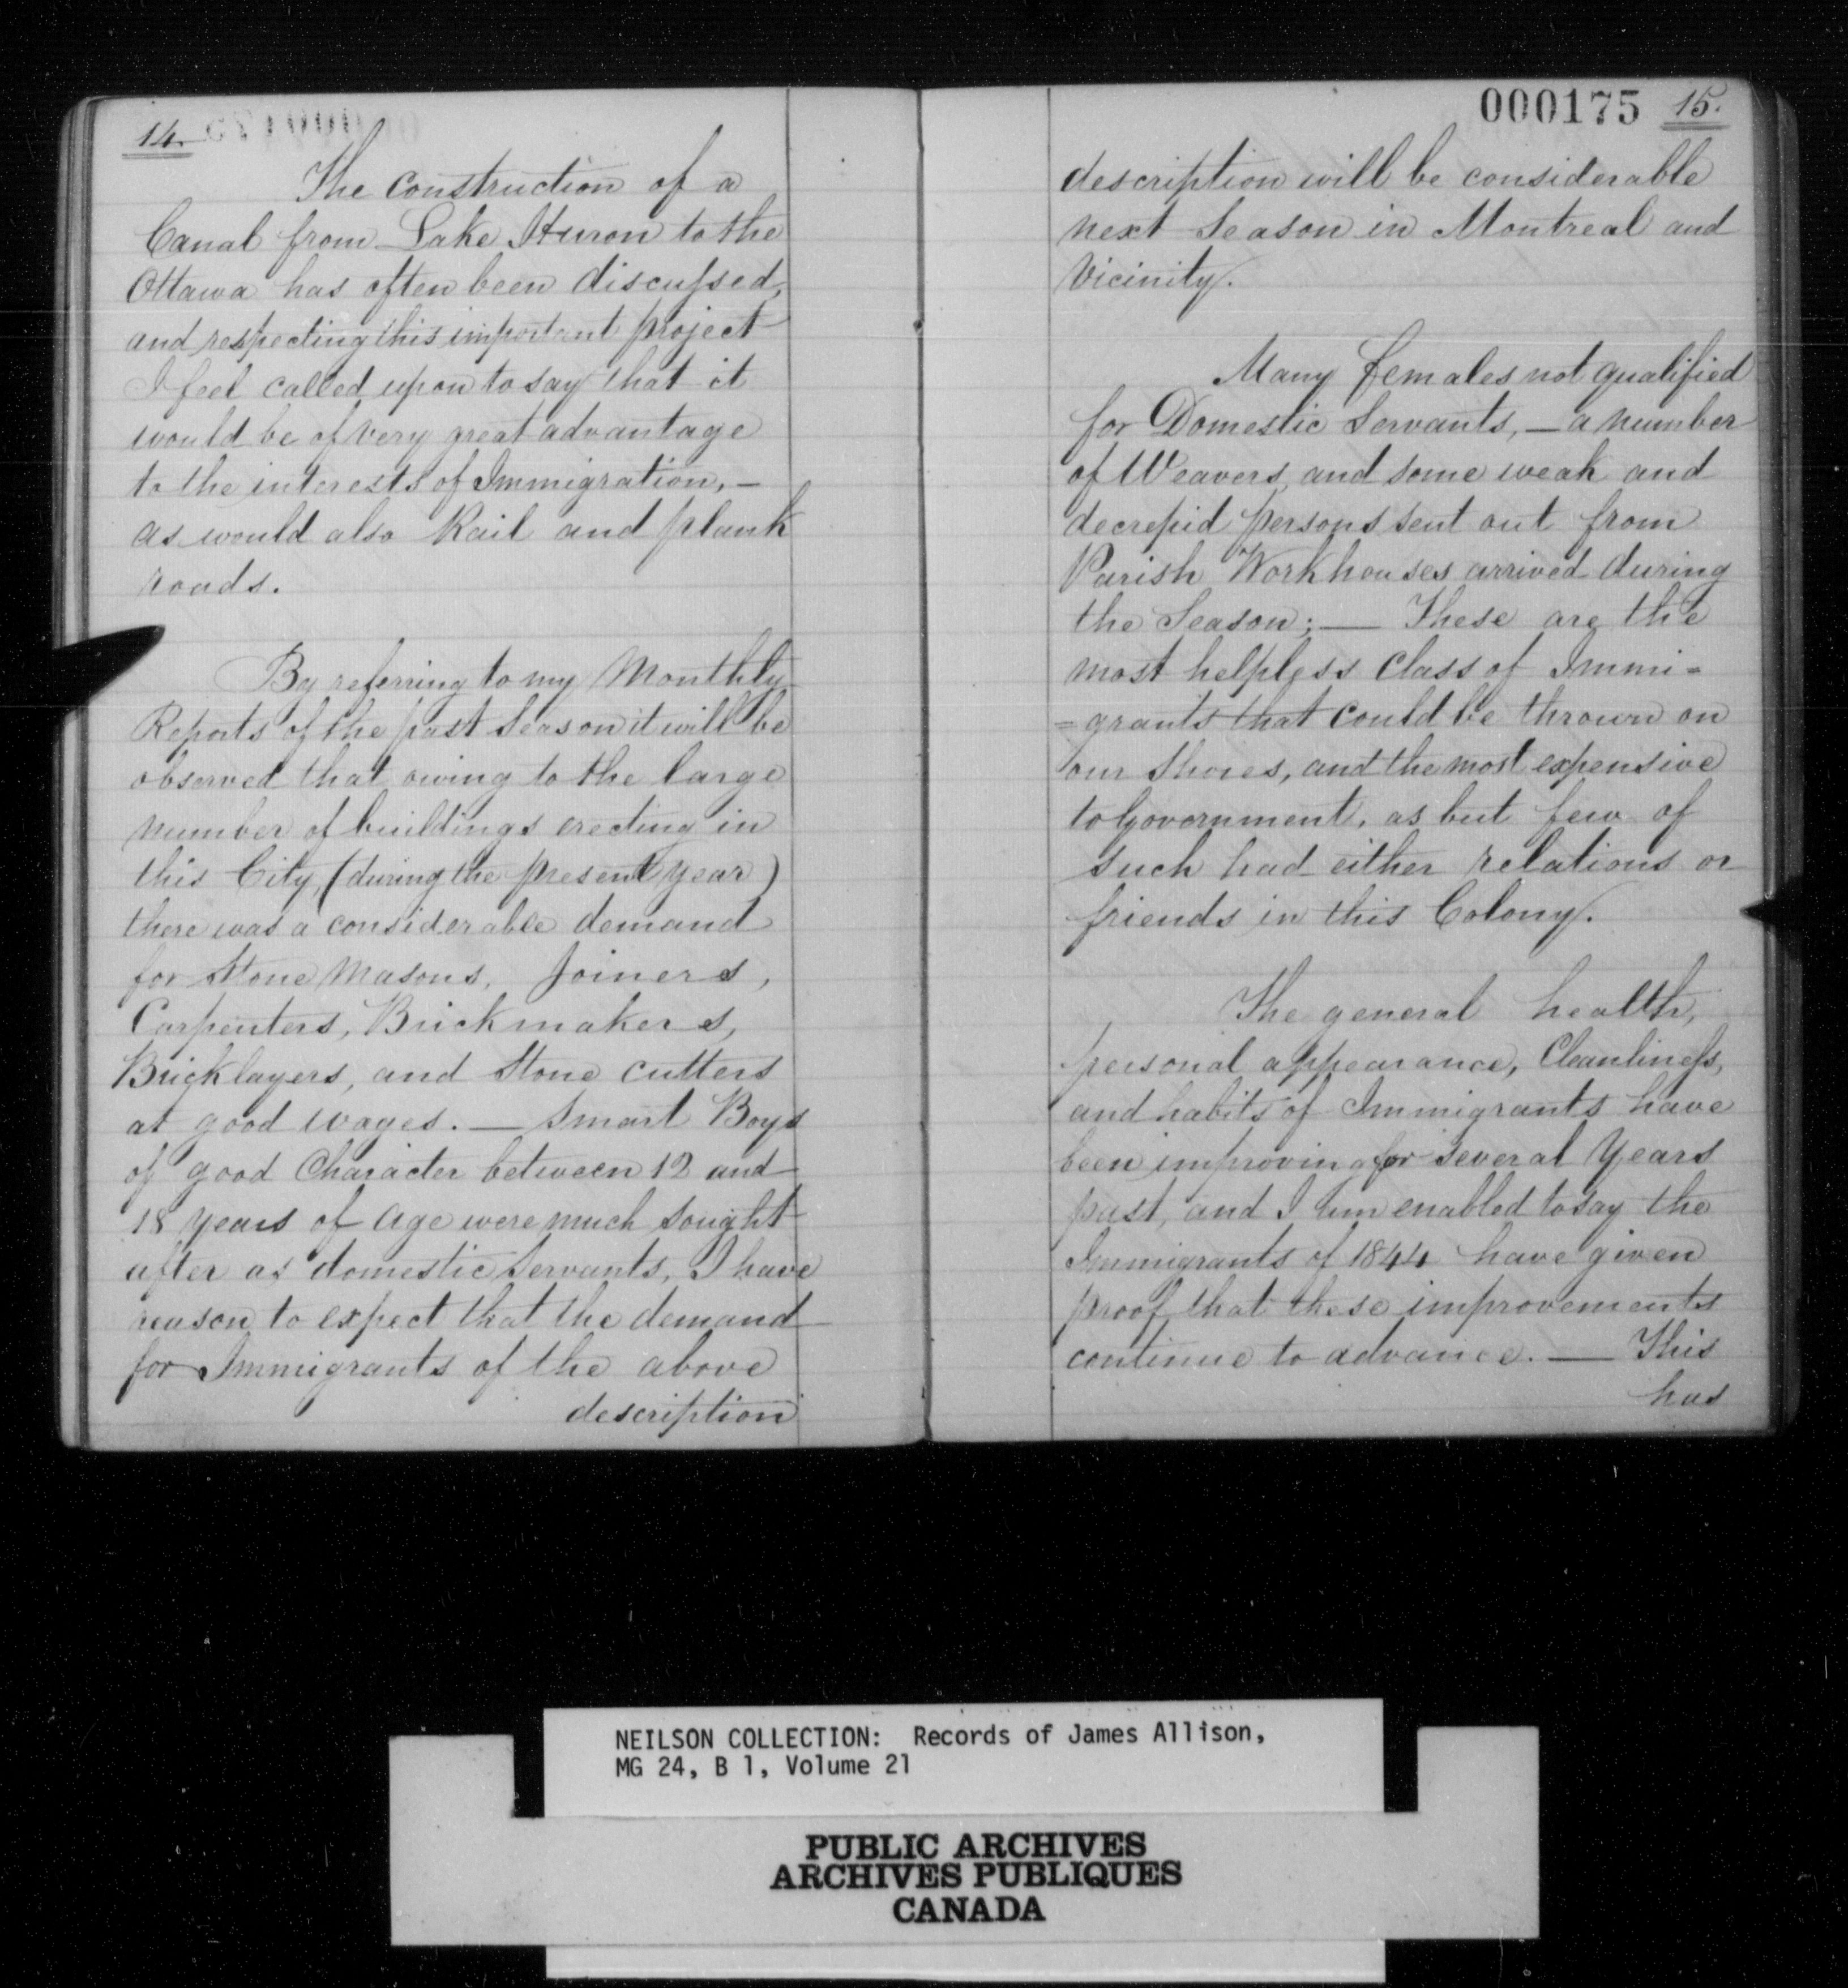 14.
The Construction of a
Canal from Lake Huron to the
Ottawa has often been discussed,
and respecting this important project
I feel called upon to say that it
would be of very great advantage
to the interests of Immigration, —
as would also Rail and plank
roads.
By referring to my Monthly
Reports of the past Season it will be
observed that owing to the large
number of buildings erecting in
this City, (during the present year)
there was a considerable demand
for Stone Masons, Joiners,
Carpenters, Brickmakers,
Bricklayers, and Stone cutters
at good wages. — Smart Boys
of good Character between 12 and
18 years of age were much sought
after as domestic Servants, I have
reason to expect that the demand
for Immigrants of the above
description
000175 15.
description will be considerable
next Season in Montreal and
Vicinity.
Many females not qualified
for Domestic Servants, — a number
of Weavers, and some weak and
decrepid persons sent out from
Parish Workhouses arrived during
the Season; — These are the
most helpless Class of Immi=
=grants that could be thrown on
our Shores, and the most expensive
to Government, as but few of
such had either relations or
friends in this Colony.
The general health,
personal appearance, Cleanliness,
and habits of Immigrants have
been improving for several Years
past, and I am enabled to say the
Immigrants of 1844 have given
proof that these improvements
continue to advance. — This
has
NEILSON COLLECTION: Records of James Allison,
MG 24, B 1, Volume 21
PUBLIC ARCHIVES
ARCHIVES PUBLIQUES
CANADA